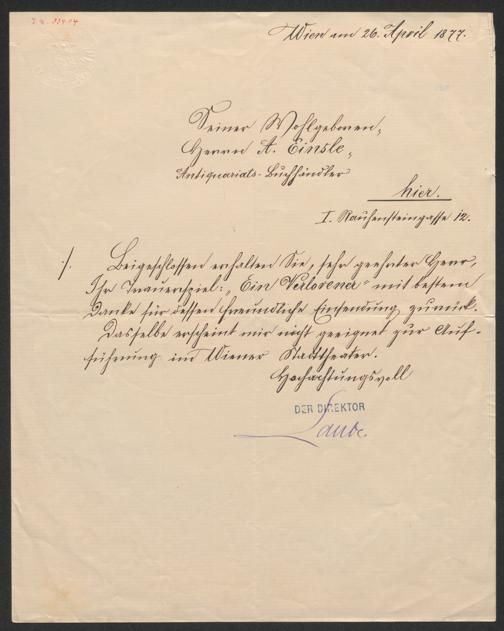 Wien am 26. April 1877.
Seiner Wohlgeboren,
Herrn A. Einsle,
Antiquariats-Buchhändler
hier.
I. Rauhensteingasse 12.
./. Beigeschlossen erhalten Sie, sehr geehrter Herr,
Ihr Trauerspiel: „Ein Verlorener“ mit bestem
Danke für dessen freundliche Einsendung zurück.
Dasselbe erscheint mir nicht geeignet zur Auf-
führung im Wiener Stadttheater.
Hochachtungsvoll
DER DIREKTOR
Laube.